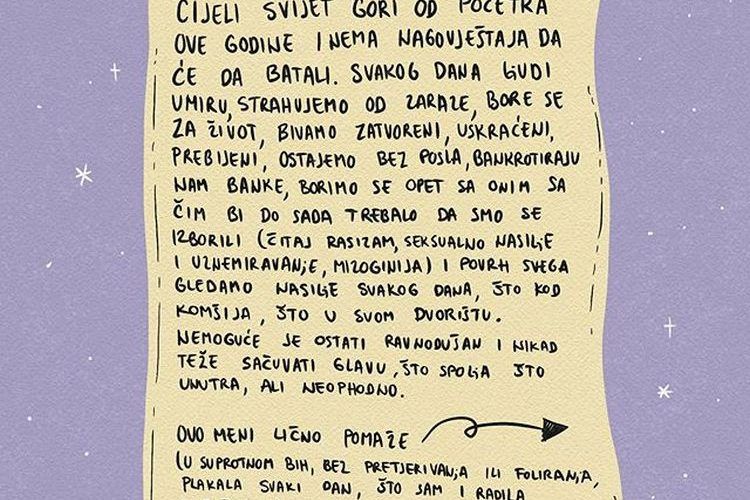 CIJELI SVIJET GORI OD POČETKA
OVE GODINE I NEMA NAGOVJEŠTAJA DA
ĆE DA BATALI. SVAKOG DANA LJUDI
UMIRU, STRAHUJEMO OD ZARAZE, BORE SE
ZA ŽIVOT, BIVAMO ZATVORENI, USKRAĆENI,
PREBIJENI, OSTAJEMO BEZ POSLA, BANKROTIRAJU
NAM BANKE, BORIMO SE OPET SA ONIM SA
ČIM BI DO SADA TREBALO DA SMO SE
IZBORILI (ČITAJ RASIZAM, SEKSUALNO NASILJE
I UZNEMIRAVANJE, MIZOGINIJA) I POVRH SVEGA
GLEDAMO NASILJE SVAKOG DANA, ŠTO KOD
KOMŠIJA, ŠTO U SVOM DVORIŠTU.
NEMOGUĆE JE OSTATI RAVNODUŠAN I NIKAD
TEŽE SAČUVATI GLAVU, ŠTO SPOLJA ŠTO
UNUTRA, ALI NEOPHODNO.
OVO MENI LIČNO POMAŽE
(U SUPROTNOM BIH, BEZ PRETJERIVANJA ILI FOLIRANJA,
PLAKALA SVAKI DAN, ŠTO SAM I RADILA